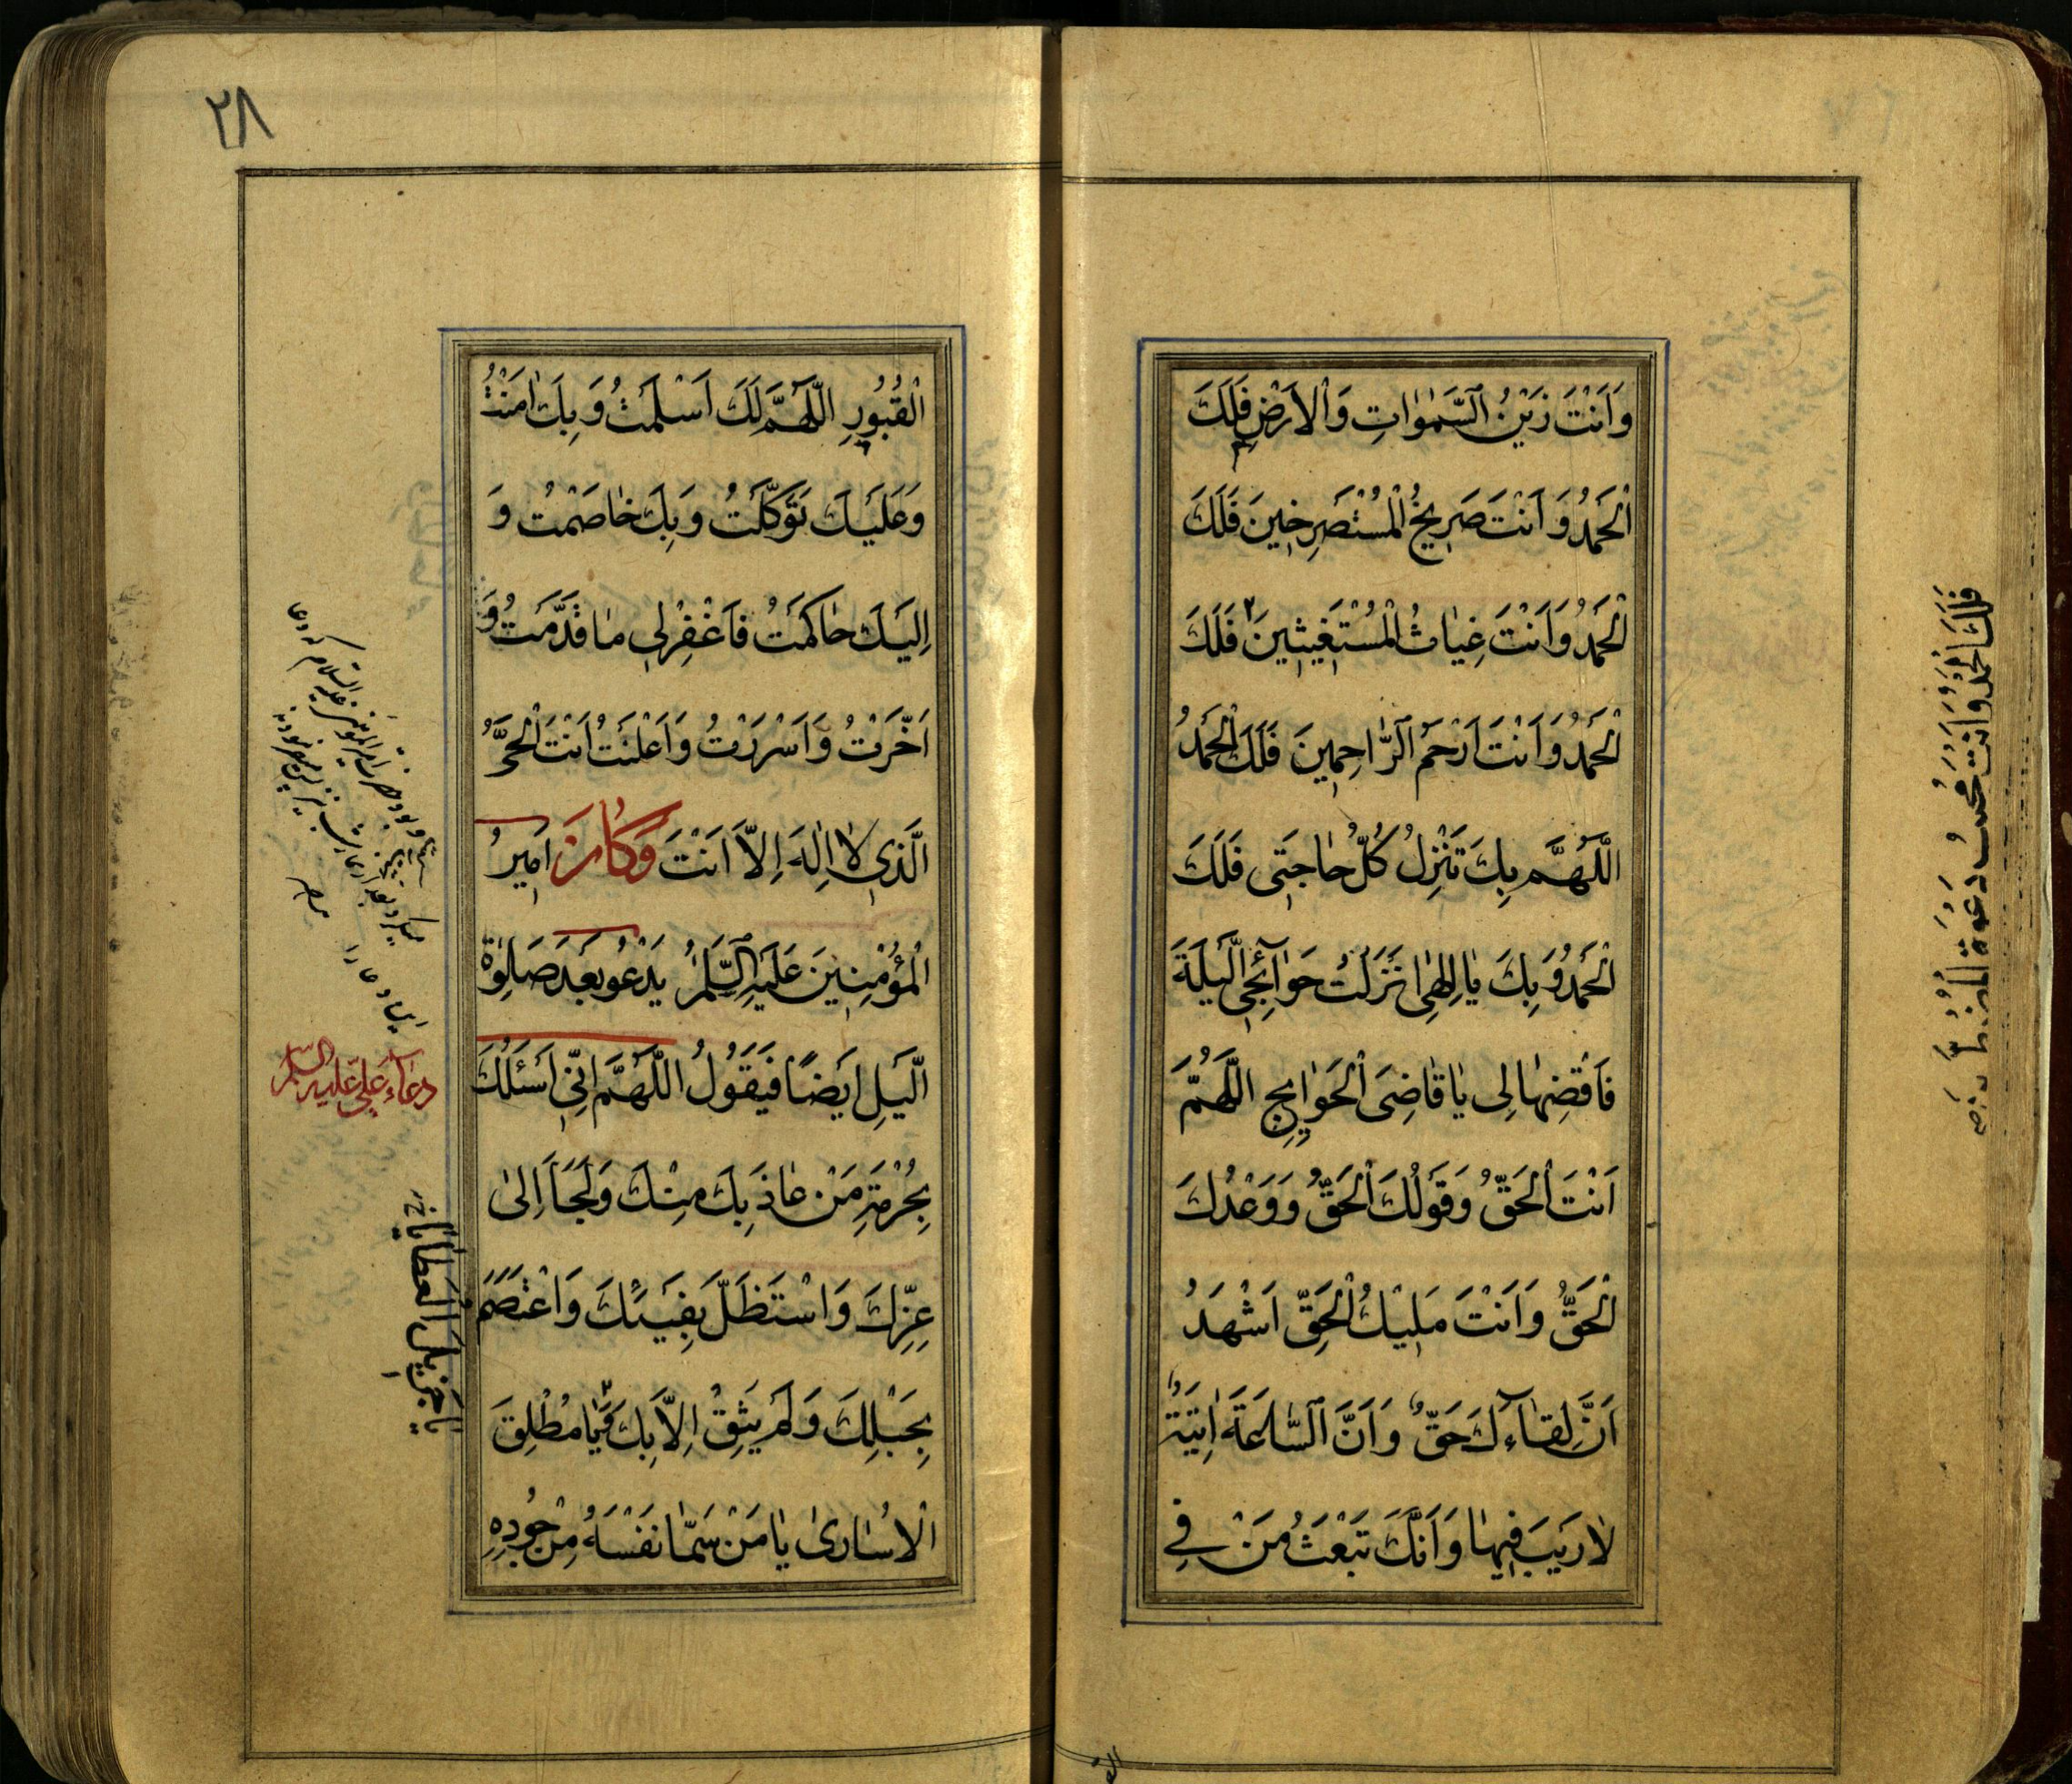 وَاَنْتَ زَيْنُ السَّمٰوٰاتِ وَالْاَرْضِ فَلَكَ
الْحَمْدُ وَاَنْتَ صَرِيخُ الْمُسْتَصْرِخِينَ فَلَكَ
الْحَمْدُ وَاَنْتَ غِيٰاثُ الْمُسْتَغِيثِينَ فَلَكَ
الْحَمْدُ وَاَنْتَ اَرْحَمُ الرّٰاحِمِينَ فَلَكَ الْحَمْدُ
اَللّٰهُمَّ بِكَ تَنْزِلُ كُلُّ حٰاجَتِى فَلَكَ
الْحَمْدُ وَبِكَ يٰا اِلٰهِى اَنْزَلْتُ حَوٰآئِجِى اللَّيْلَةَ
فَاقْضِهٰا لِى يٰا قٰاضِىَ الْحَوٰايِجِ اَللّٰهُمَّ
اَنْتَ الْحَقُّ وَقَوْلُكَ الْحَقُّ وَوَعْدُكَ
الْحَقُّ وَاَنْتَ مَلِيْكُ الْحَقِّ اَشْهَدُ
اَنَّ لِقٰآءَكَ حَقٌّ وَاَنَّ السّٰاعَةَ اٰتِيَةٌ
لٰا رَيْبَ فِيهٰا وَاَنَّكَ تَبْعَثُ مَنْ فِي
فَلَكَ الْحَمْدُ وَاَنْتَ مُجِيبُ دَعْوَةِ
٢٨
الْقُبُورِ اَللّٰهُمَّ لَكَ اَسْلَمْتُ وَبِكَ اٰمَنْتُ
وَعَلَيْكَ تَوَكَّلْتُ وَبِكَ خٰاصَمْتُ وَ
اِلَيْكَ حٰاكَمْتُ فَاغْفِرْ لِى مٰا قَدَّمْتُ وَ
اَخَّرْتُ وَاَسْرَرْتُ وَاَعْلَنْتُ اَنْتَ الْحَىُّ
الَّذِى لٰا اِلٰهَ اِلَّا اَنْتَ وَكٰانَ اَمِيرُ
الْمُؤْمِنِينَ عَلَيْهِ السَّلٰمُ يَدْعُو بَعْدَ صَلٰوةِ
اللَّيْلِ اَيْضًا فَيَقُولُ اَللّٰهُمَّ اِنِّى اَسْئَلُكَ
بِحُرْمَةِ مَنْ عٰاذَ بِكَ مِنْكَ وَلَجَأَ اِلىٰ
عِزِّكَ وَاسْتَظَلَّ بِفَيْئِكَ وَاعْتَصَمَ
بِحَبْلِكَ وَلَمْ يَثِقْ اِلَّا بِكَ يٰا مُطْلِقَ
الْاُسٰارىٰ يٰا مَنْ سَمّٰا نَفْسَهُ مِنْ جُودِهِ
دعاء على عليه السلام
يا جَزِيلَ الْعَطايا